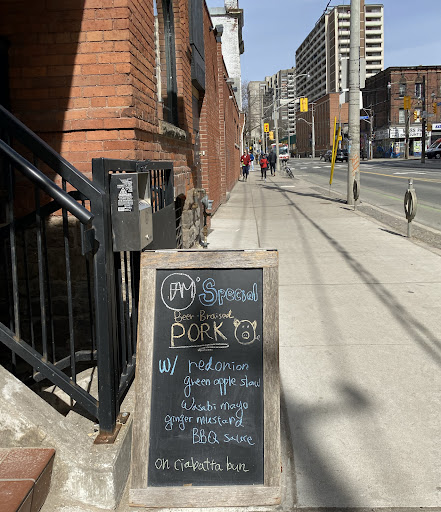 FAM Special
Beer-Braised
PORK
w/ redonion
green apple slaw
Wasabi mayo
ginger mustand
BBQ sauce
on ciabatta bun